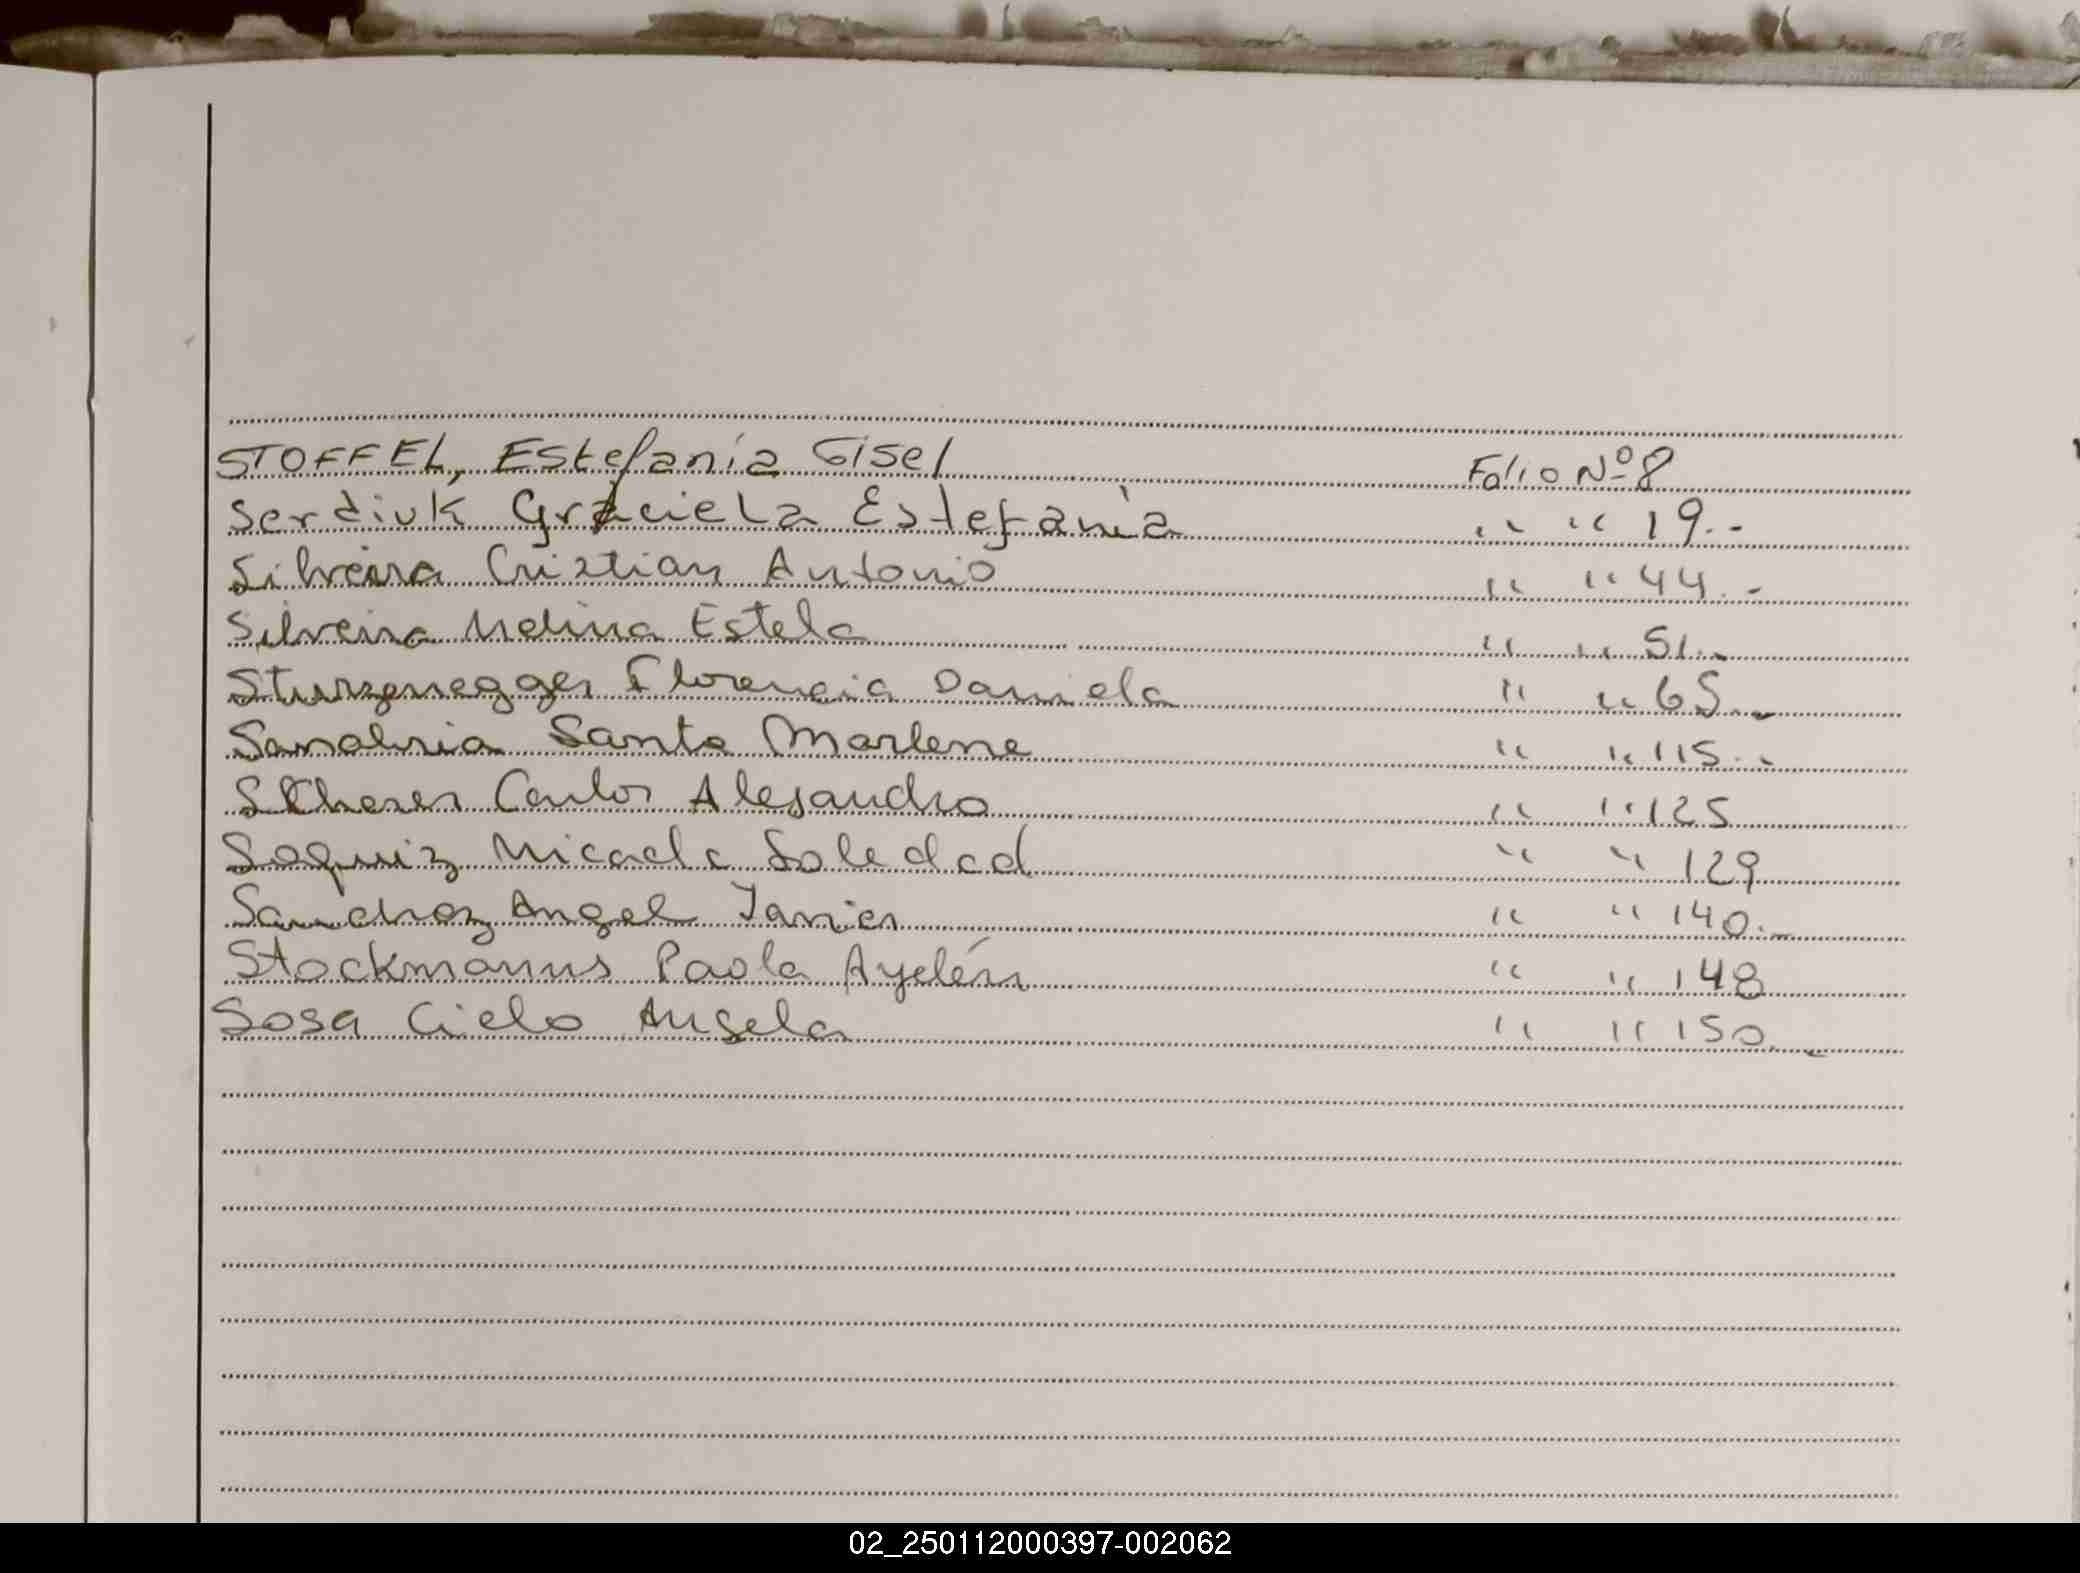 STOFFEL, Estefanía Gisel Folio Nº 8
Serdiuk Graciela Estefania " " 19.-
Silveira Cristian Antonio " " 44.-
Silveira Melina Estela " " 51.-
Sturzenegger Florencia Daniela " " 65.-
Sanabria Santa Marlene " " 115.-
Carlos Alejandro " " 125
Micaela Soledad " " 129
Sanchez Angel Javier " " 140.-
Stockmanns Paola Ayelén " " 148
Sosa Cielo Angela " " 150.-
02_250112000397-002062